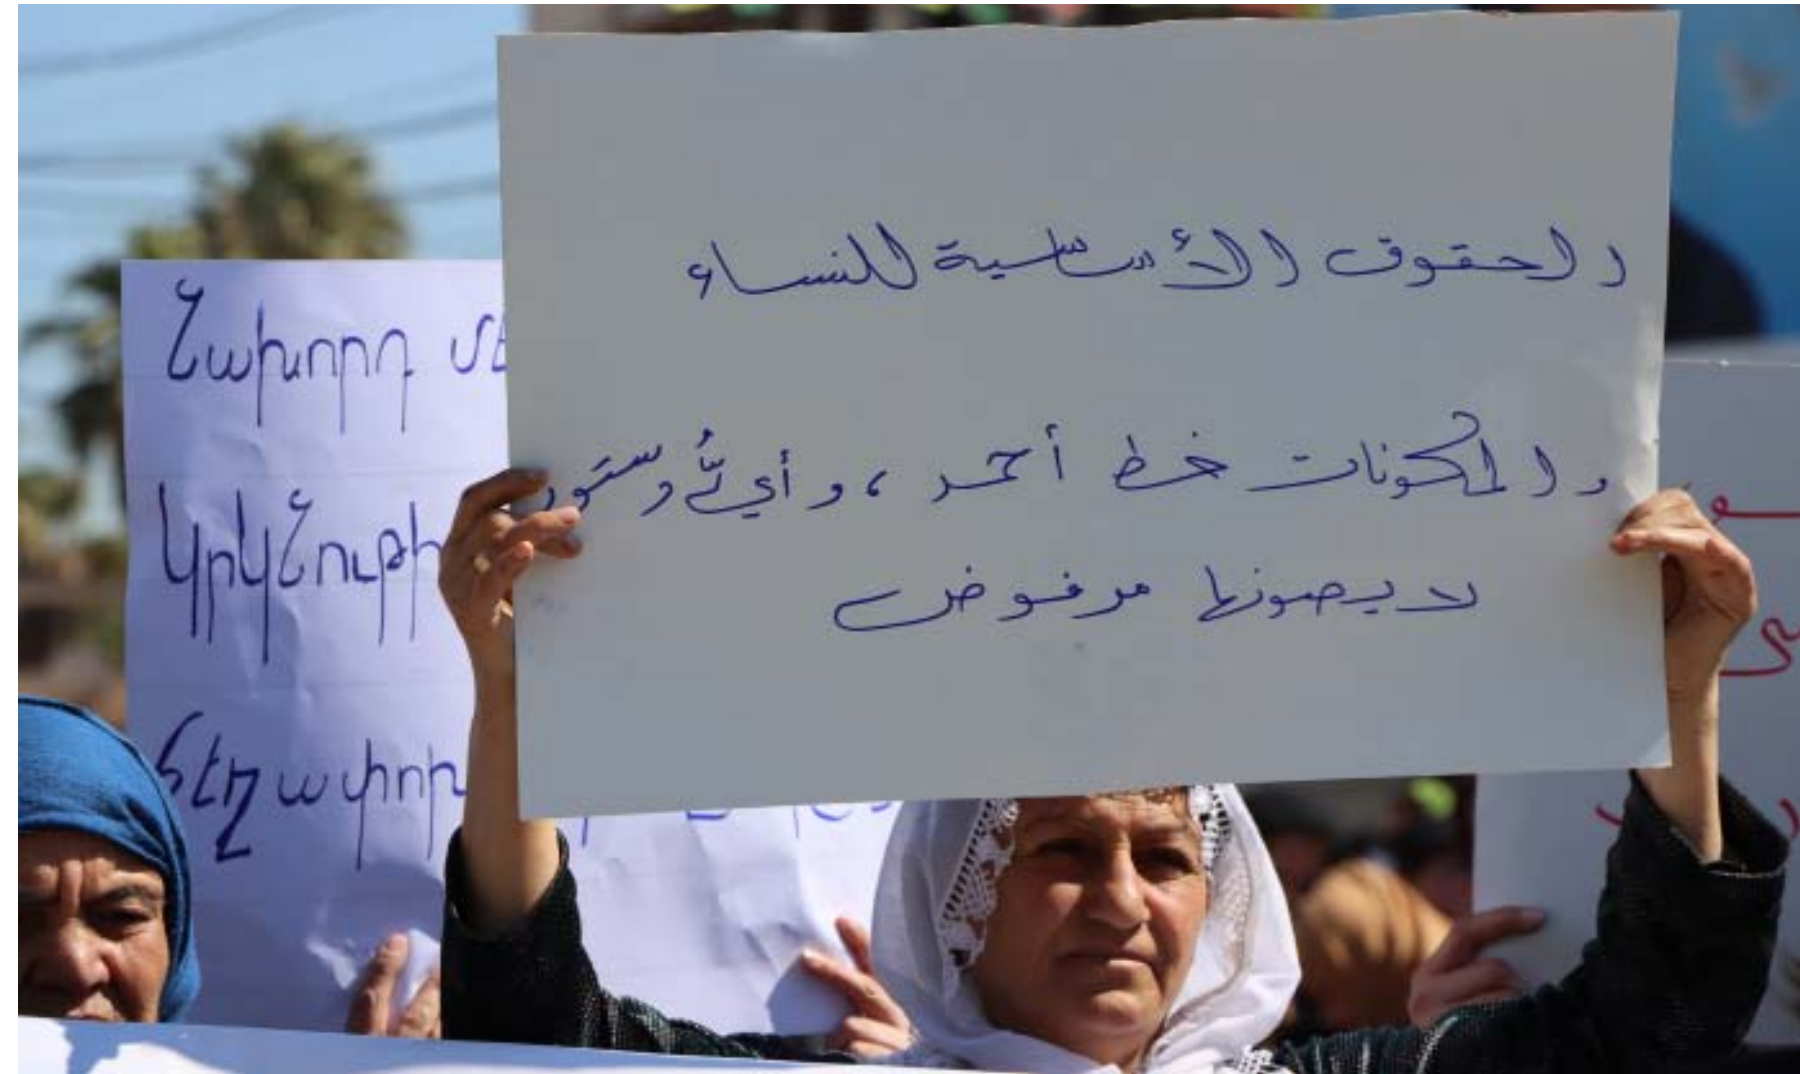 والحقوق الأساسية للنساء
والمكونات خط أحمر ، وأيُّ دستور
لا يصونها مرفوض
Նախորդ մե
կրկնութի